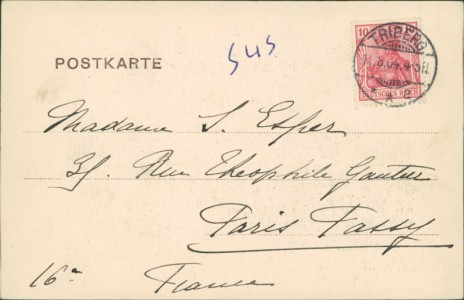 10
TRIBERG
DEUTSCHES REICH
POSTKARTE
Madame S. Esper
35. Rue Theophile Gautier
Paris Passy
16e
France